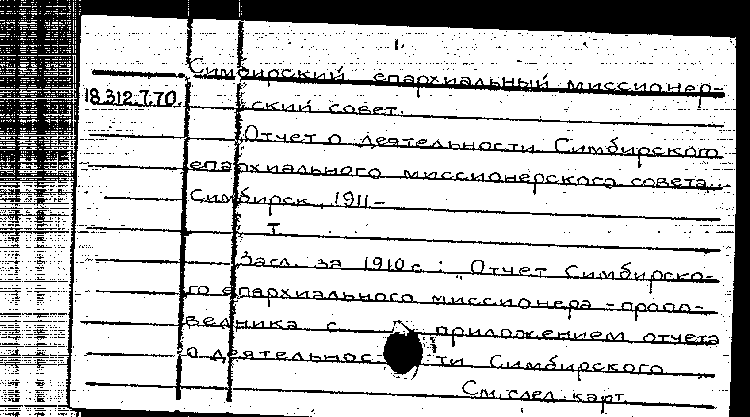 1.
Симбирский епархиальный миссионер-
18.312.7.70. ский совет.
Отчет о деятельности Симбирского
епархиального миссионерского совета..
Симбирск, 1911-
т.
Загл. за 1910 г: „Отчет Симбирско-
го епархиального миссионера-пропо-
ведника с приложением отчета
о деятельности Симбирского
См. след. карт.